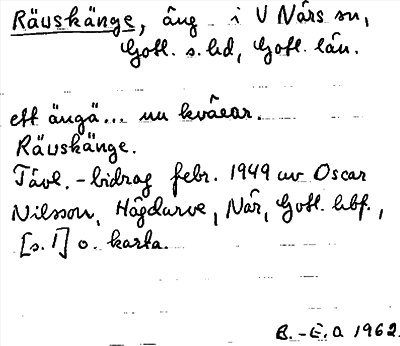 Räuskänge, äng i V Närs sn,
Gotl. s. hd, Gotl. län.
ett ängä... nu kväior.
Räuskänge.
Tävl.-bidrag febr. 1949 av Oscar
Nilsson, Hägdarve, När, Gotl. hbf.,
[s. 1] o. karta.
B.-E.O 1962.